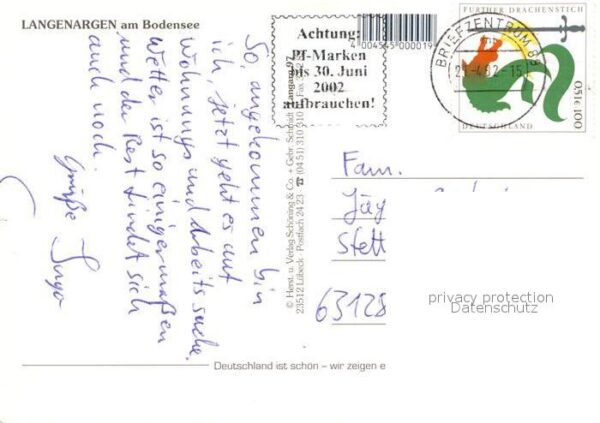 LANGENARGEN am Bodensee
So, angekommen bin
ich, jetzt geht es auf
Wohnungs und Arbeitssuche.
Wetter ist so einigermaßen
und der Rest findet sich
auch noch.
Grüße Ingo
© Herst. u. Verlag Schöning & Co. + Gebr. Schmidt
23512 Lübeck · Postfach 24 23 ☎ (04 51) 310
Langarg 97
4 004545 000019
Achtung:
Pf-Marken
bis 30. Juni
2002
aufbrauchen!
BRIEFZENTRUM 88
-4.02-15
FURTHER DRACHENSTICH
0,51€ 100
DEUTSCHLAND
Fam.
Jäg
Stett
63128
privacy protection
Datenschutz
Deutschland ist schön – wir zeigen e